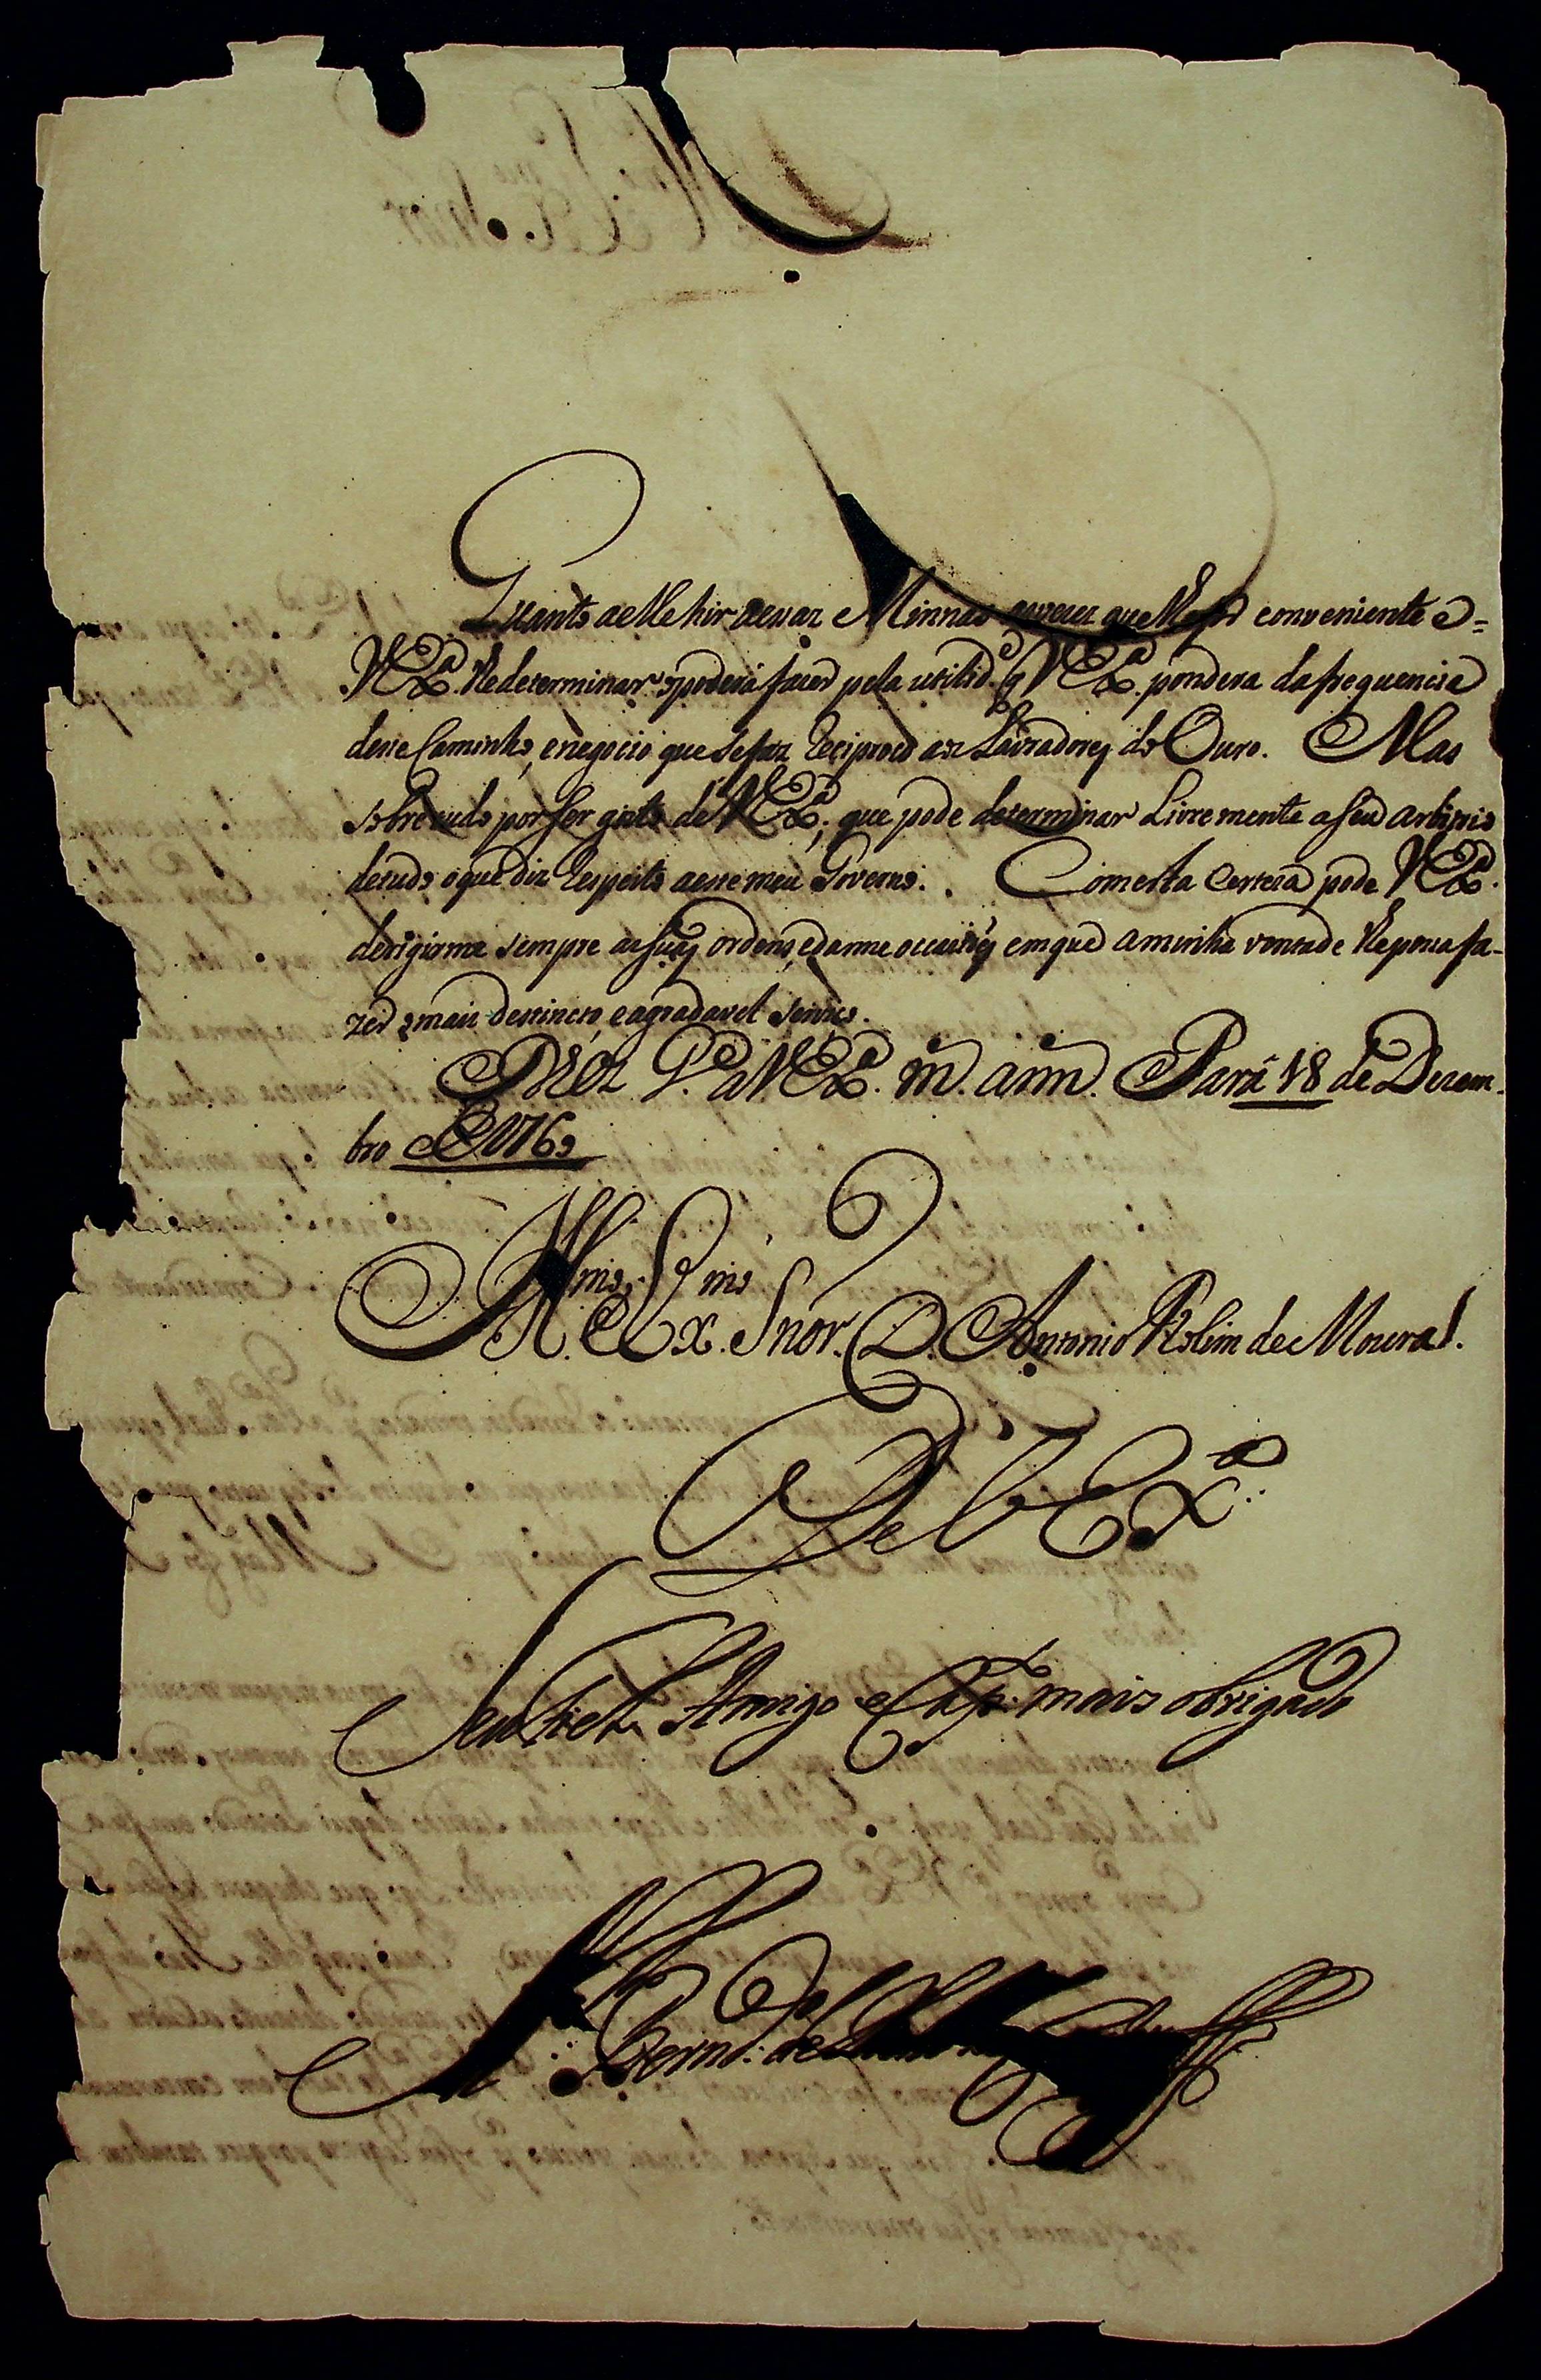 Quanto aelle hir acuar Minnas que conveniente e=
V Exª. Redeterminar o poderá fazer pela utilidᵉ. q V Exª. pondera dafrequencia
deste Caminho, enegocio que sefaz Reciproco aos Lavradores do Ouro. Mas
sobretudo por ser gosto de V Exª; que pode determinar Livremente aseu arbitrio
detudo oque diz Respeito aesse meu Governo. Comesta Certeza pode V Exª.
derigirme sempre assuas ordens, edarme occasiões emque aminha vontade lhepossa fa-
zer omais destincto, eagradavel serviço.
Dˢ. Gᵉ. a V Exª. m. ann. Pará 18 de Dezem-
bro de 1760
Illᵐᵒ. e Exᵐᵒ. Snõr. D. Antonio Rolim de Moura.
De V Exª.
Seu Fiel Amigo e Cap. mais obrigado
Mᵉˡ. Bernᵈᵒ. de Mello